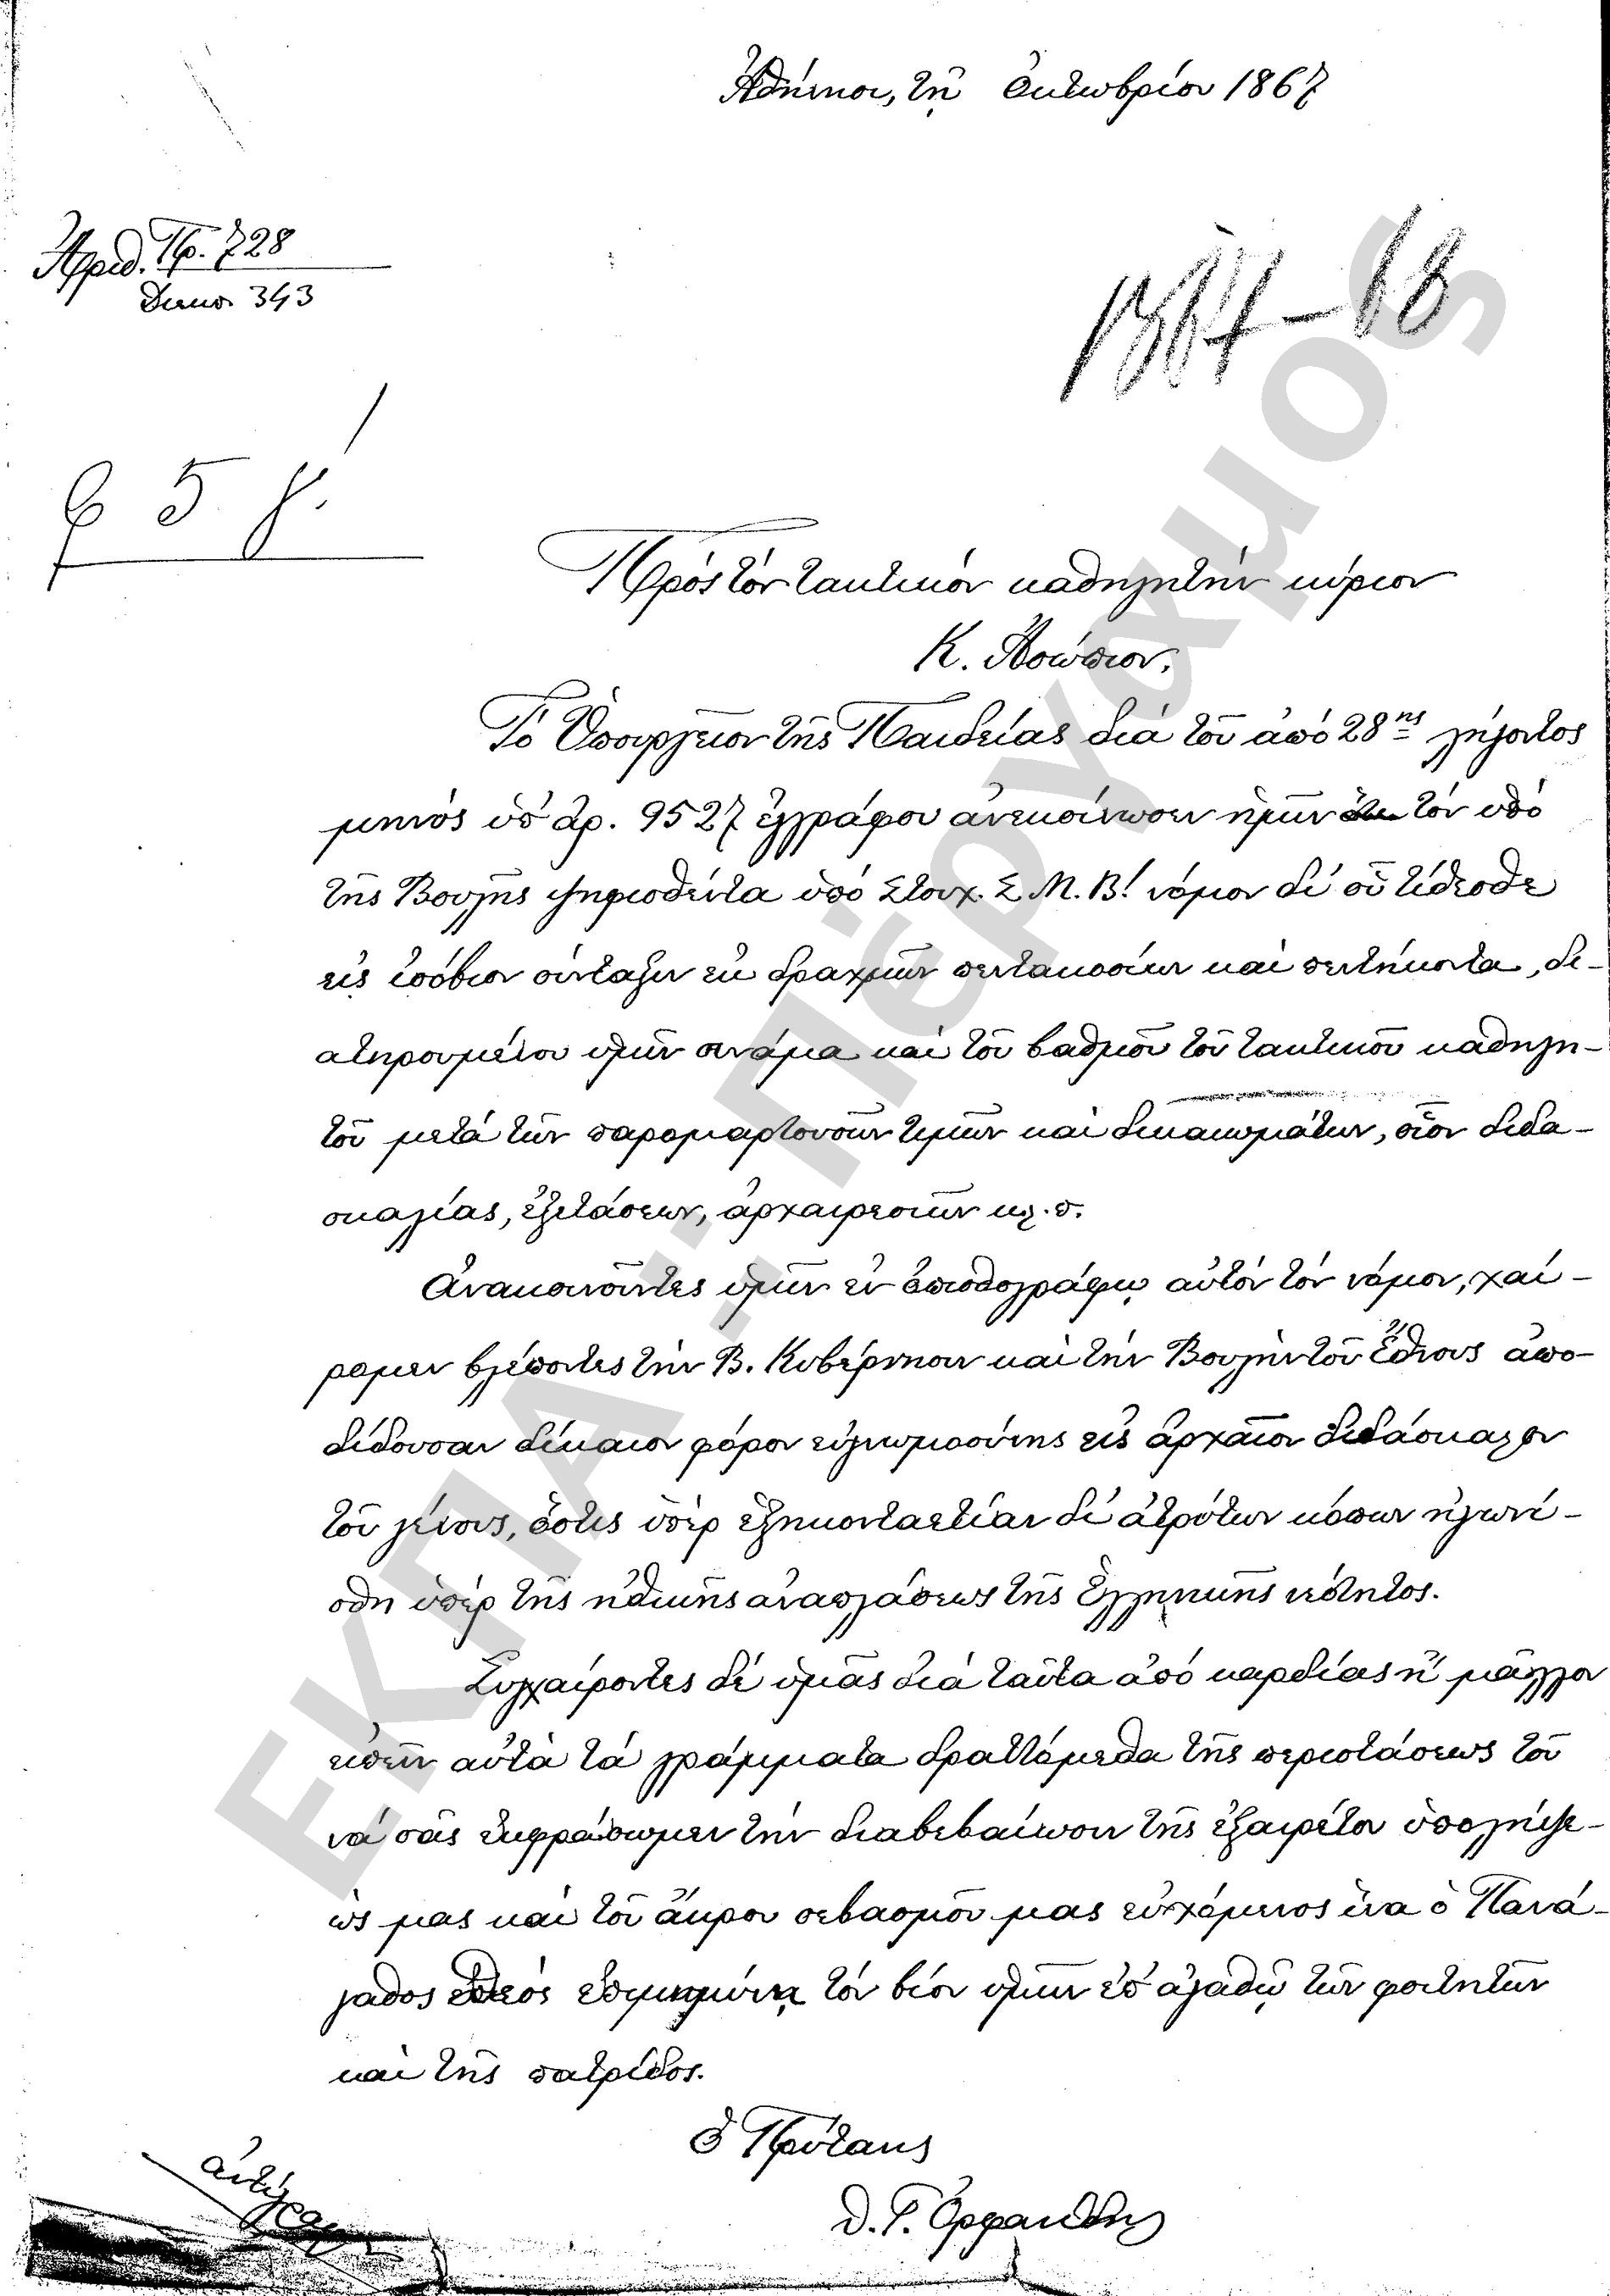 Ἀθῆναι, τῇ Ὀκτωβρίου 1867
Ἀριθ. Πρ. 728
Διεκπ. 343
1867-68
Πρὸς τὸν τακτικὸν καθηγητὴν κύριον
Κ. Ἀσώπιον,
Τὸ Ὑπουργεῖον τῆς Παιδείας διὰ τοῦ ἀπὸ 28ης λήγοντος
μηνὸς ὑπ' ἀρ. 9527 ἐγγράφου ἀνεκοίνωσεν ἡμῖν τὸν ὑπὸ
τῆς Βουλῆς ψηφισθέντα ὑπὸ Στοιχ. Σ Μ. Β! νόμον δι' οὗ τίθεσθε
εἰς ἰσόβιον σύνταξιν ἐκ δραχμῶν πεντακοσίων καὶ πεντήκοντα, δι-
ατηρουμένου ὑμῖν συνάμα καὶ τοῦ βαθμοῦ τοῦ τακτικοῦ καθηγη-
τοῦ μετὰ τῶν παρομαρτουσῶν τιμῶν καὶ δικαιωμάτων, οἷον διδα-
σκαλίας, ἐξετάσεων, ἀρχαιρεσιῶν κλ. π.
Ἀνακοινοῦντες ὑμῖν ἐν ὀπισθογράφῳ αὐτὸν τὸν νόμον, χαί-
ρομεν βλέποντες τὴν Β. Κυβέρνησιν καὶ τὴν Βουλὴν τοῦ Ἔθνους ἀπο-
δίδουσαν δίκαιον φόρον εὐγνωμοσύνης εἰς ἀρχαῖον διδάσκαλον
τοῦ γένους, ὅστις ὑπὲρ ἑξηκονταετίαν δι' ἀτρύτων κόπων ἠγωνί-
σθη ὑπὲρ τῆς ἠθικῆς ἀναπλάσεως τῆς Ἑλληνικῆς νεότητος.
Συγχαίροντες δὲ ὑμᾶς διὰ ταῦτα ἀπὸ καρδίας ἢ μᾶλλον
εἰπεῖν αὐτὰ τὰ γράμματα δραττόμεθα τῆς περιστάσεως τοῦ
νὰ σᾶς ἐκφράσωμεν τὴν διαβεβαίωσιν τῆς ἐξαιρέτου ὑπολήψε-
ώς μας καὶ τοῦ ἄκρου σεβασμοῦ μας εὐχόμενος ἵνα ὁ Πανά-
γαθος Θεὸς ἐπιμηκύνῃ τὸν βίον ὑμῶν ἐπ' ἀγαθῷ τῶν φοιτητῶν
καὶ τῆς πατρίδος.
Ὁ Πρύτανις
Θ. Γ. Ὀρφανίδης
ΕΚΠΑ: Πέργαμος